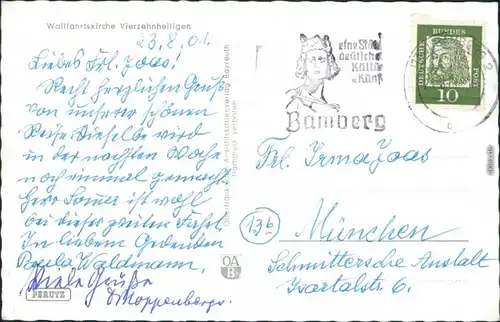 Wallfahrtskirche Vierzehnheiligen
23.8.61.
Liebes Frl. Joas!
Recht herzlichen Gruß
von unserer schönen
Reise. Dieselbe wird
in der nächsten Woche
noch einmal gemacht
Herr Sommer ist wohl
bei dieser zweiten Fahrt.
In liebem Gedenken
Paula Waldmann.
Viele Grüße
PERUTZ
OA
B
Ansichtskartenverlag Bayreuth
Nachdruck verboten
eine Stadt
deutscher
Kultur
u. Kunst
Bamberg
DEUTSCHE
BUNDES
POST
10
Frl. Irma Joas
(13b)
München
Schmittersche Anstalt
Isartalstr. 6.